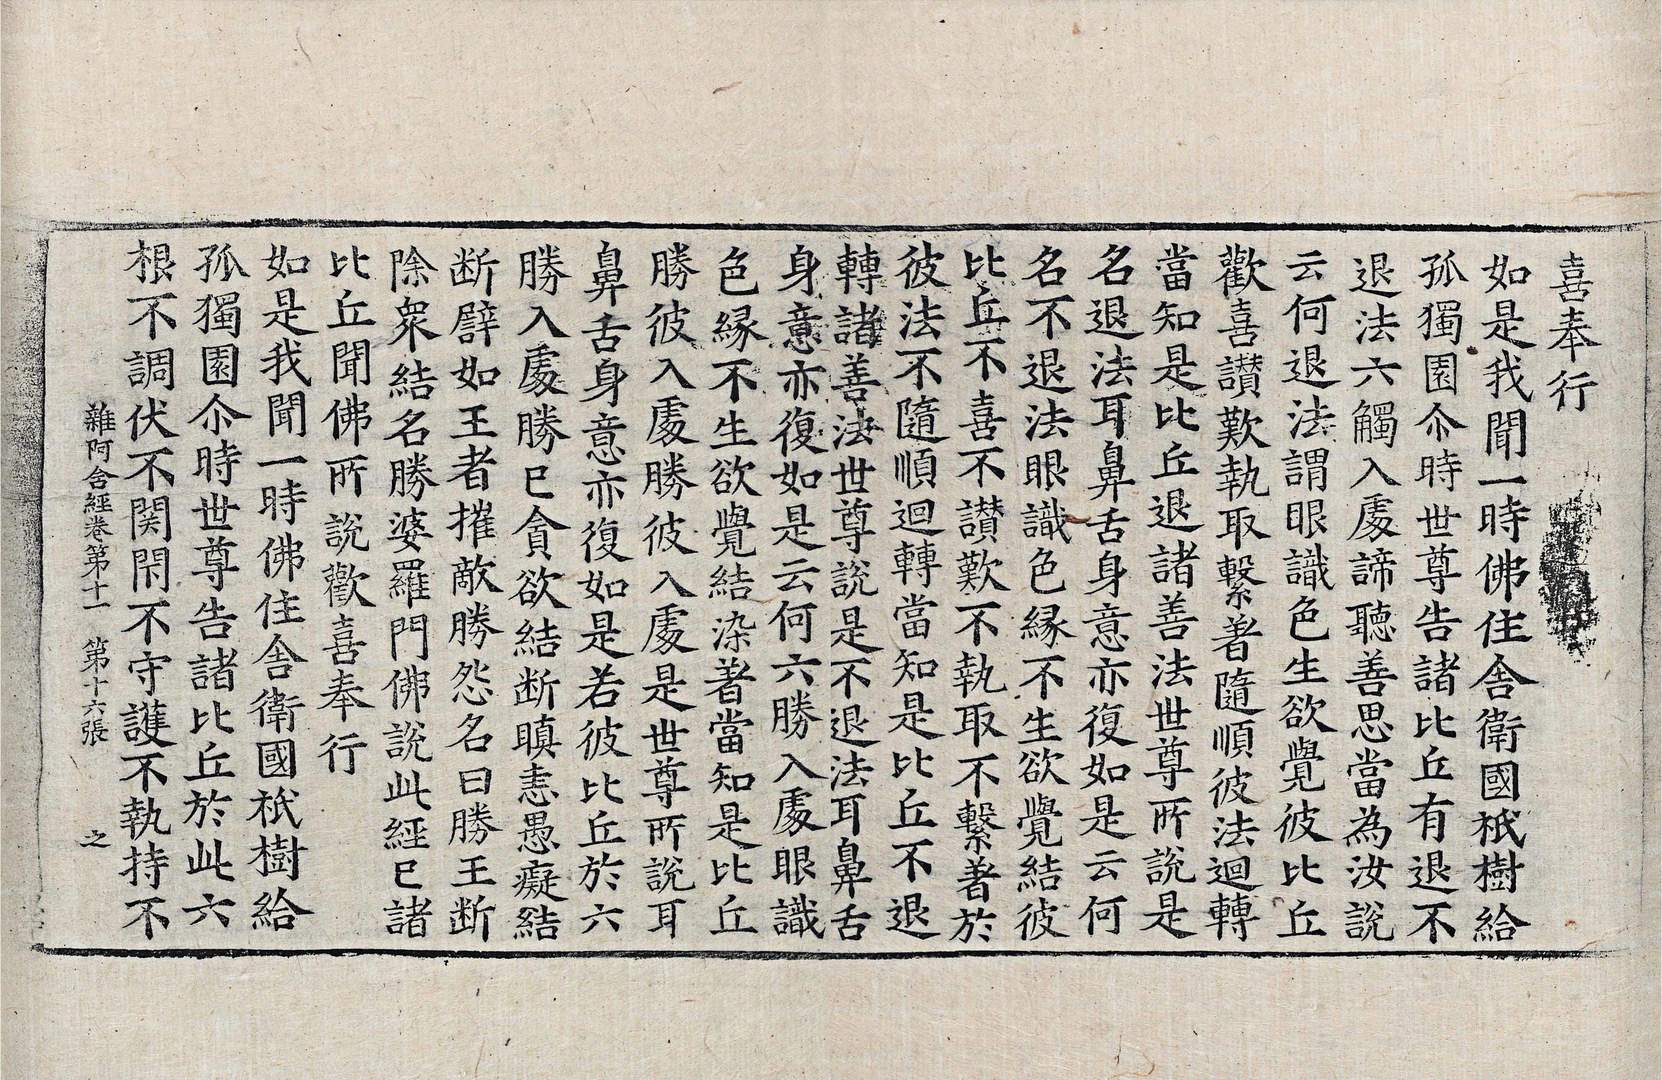 喜奉行
如是我聞一時佛住舍衛國祇樹給
孤獨園尒時世尊告諸比丘有退不
退法六觸入處諦聽善思當為汝說
云何退法謂眼識色生欲覺彼比丘
歡喜讃歎執取繫著隨順彼法迴轉
當知是比丘退諸善法世尊所說是
名退法耳鼻舌身意亦復如是云何
名不退法眼識色緣不生欲覺結彼
比丘不喜不讃歎不執取不繫著於
彼法不隨順迴轉當知是比丘不退
轉諸善法世尊說是不退法耳鼻舌
身意亦復如是云何六勝入處眼識
色緣不生欲覺結染著當知是比丘
勝彼入處勝彼入處是世尊所說耳
鼻舌身意亦復如是若彼比丘於六
勝入處勝已貪欲結断瞋恚愚癡結
断譬如王者摧敵勝怨名曰勝王断
除衆結名勝婆羅門佛說此經已諸
比丘聞佛所說歡喜奉行
如是我聞一時佛住舍衛國祇樹給
孤獨園尒時世尊告諸比丘於此六
根不調伏不関閇不守護不執持不
雜阿含經卷第十一 第十六張 之